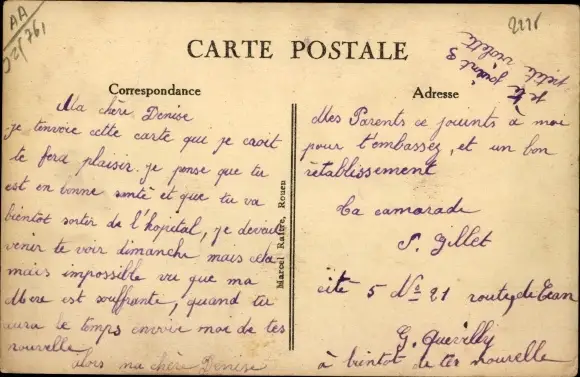 AA
2225
CARTE POSTALE
Correspondance
Ma chère Denise
je tenvoie cette carte qui je croit
te fera plaisir. je pense que tu
est en bonne santé et que tu va
bientot sortir de l'hopital, je devait
venir te voir dimanche mais cela
mais impossible vu que ma
Mere est souffrante, quand tu
aura le temps envoie moi de tes
nouvelle
Alors ma chère Denise
Marcel Rafire, Rouen
Adresse
je te joint 3
petite violette
Mes Parents ce jouints à moi
pour t'embassez, et un bon
rétablissement
ta camarade
S. Gillet
cité 5 No 21 route de
G. Quevilly
à bientot de tes nouvelle